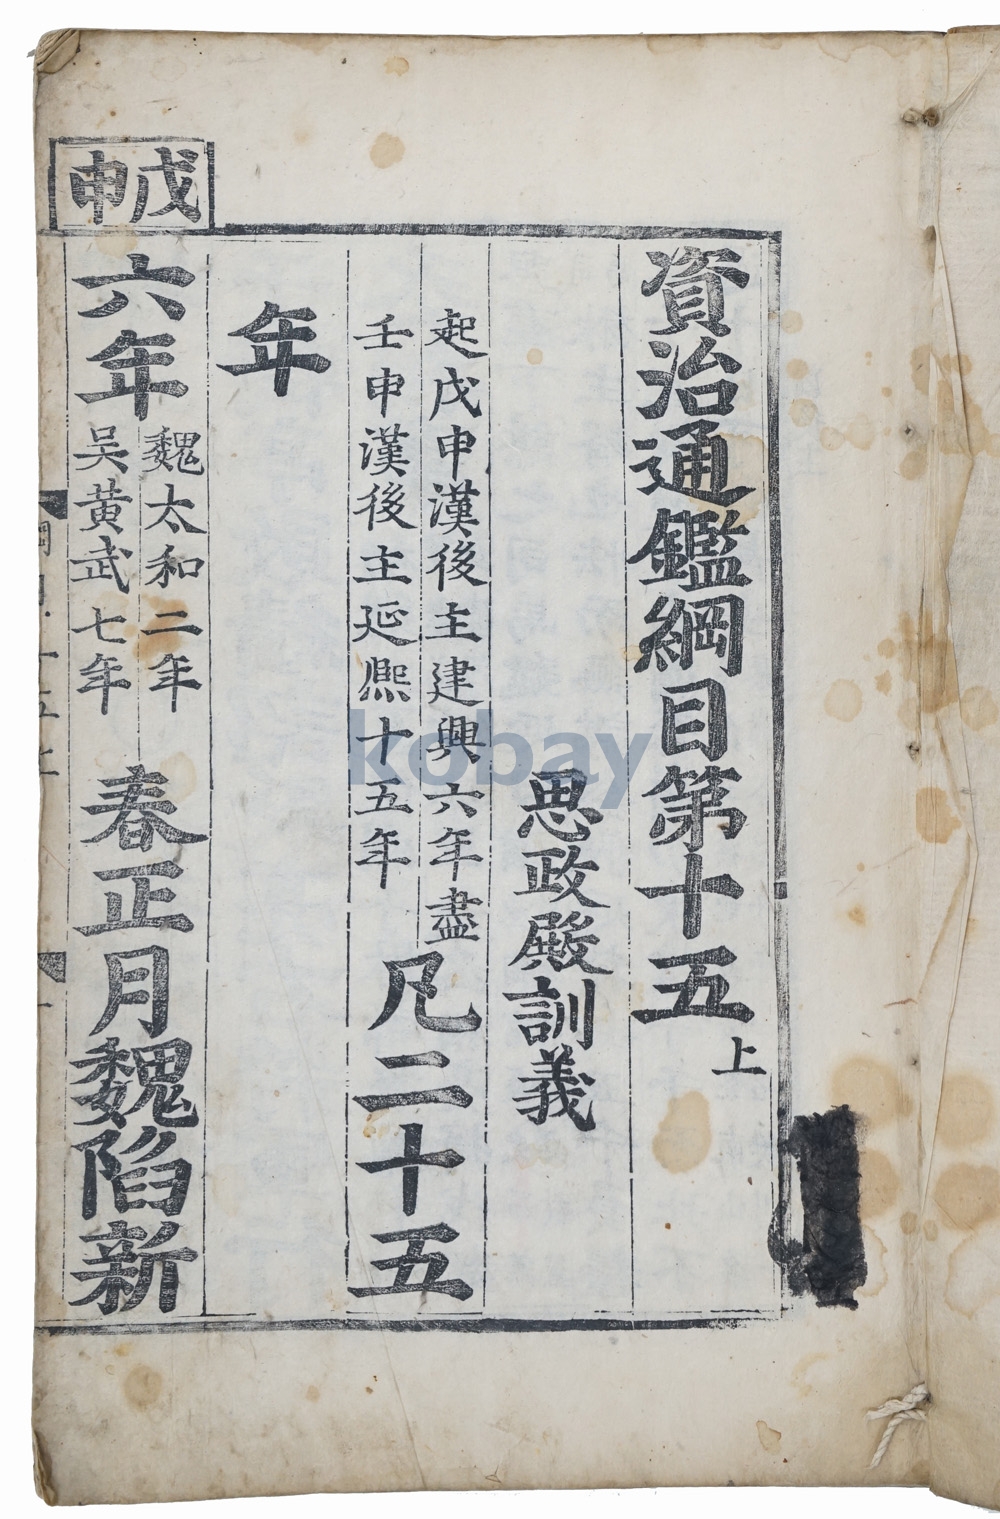 資治通鑑綱目第十五上
思政殿訓義
起戊申漢後主建興六年盡
壬申漢後主延熙十五年
凡二十五
年
戊申
六年
魏太和二年
吳黃武七年
春正月魏陷新
kobay